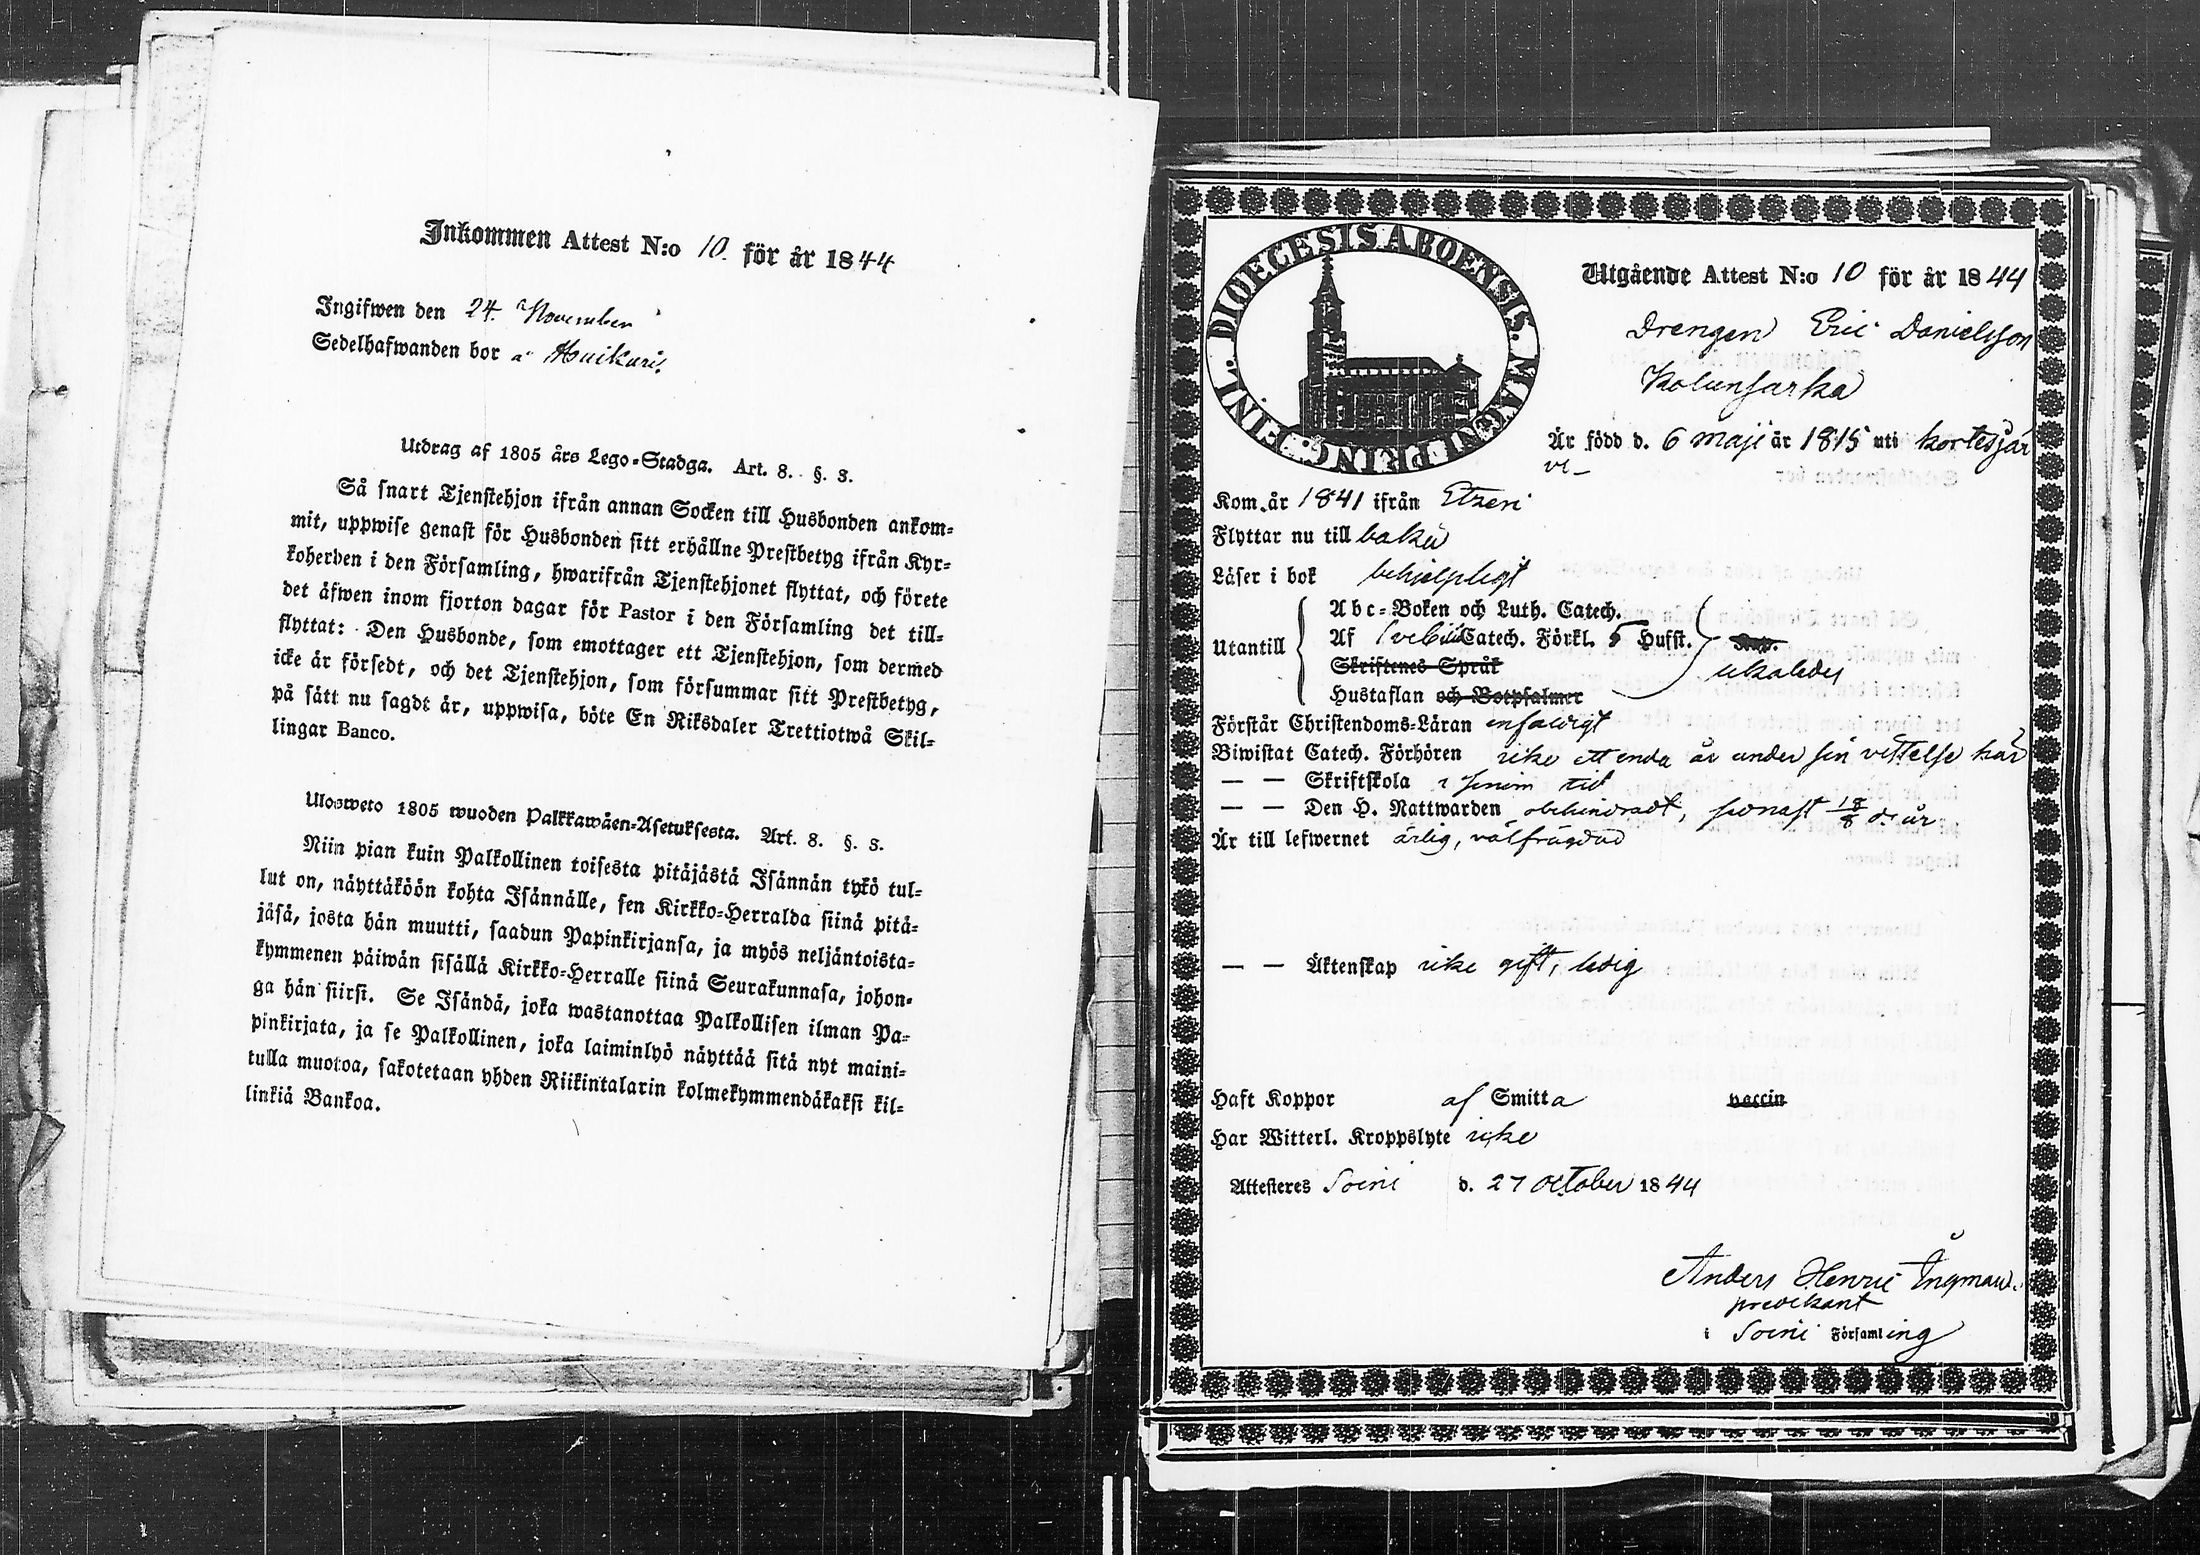 Inkommen Attest N:o 10. för år 1844
Ingifwen den 24. November
Sedelhafwanden bor å Huikuri.
Utdrag af 1805 års Lego-Stadga. Art. 8. §. 3.
Så snart Tjenstehjon ifrån annan Socken till Husbonden ankom-
mit, uppwise genast för Husbonden sitt erhållne Prestbetyg ifrån Kyr-
koherden i den Församling, hwarifrån Tjenstehjonet flyttat, och förete
det äfwen inom fjorton dagar för Pastor i den Församling det till-
flyttat: Den Husbonde, som emottager ett Tjenstehjon, som dermed
icke är försedt, och det Tjenstehjon, som försummar sitt Prestbetyg,
på sätt nu sagdt är, uppwisa, böte En Riksdaler Trettiotwå Skil-
lingar Banco.
Ulosweto 1805 wuoden Palkkawäen-Asetuksesta. Art. 8. §. 3.
Niin pian kuin Palkollinen toisesta pitäjästä Isännän tykö tul-
lut on, näyttäköön kohta Isännälle, sen Kirkko-Herralda siinä pitä-
jäsä, josta hän muutti, saadun Papinkirjansa, ja myös neljäntoista-
kymmenen päiwän sisällä Kirkko-Herralle siinä Seurakunnasa, johon-
ga hän siirsi. Se Isändä, joka wastanottaa Palkollisen ilman Pa-
pinkirjata, ja se Palkollinen, joka laiminlyö näyttää sitä nyt maini-
tulla muotoa, sakotetaan yhden Riikintalarin kolmekymmendäkaksi kil-
linkiä Bankoa.
DIOECESIS ABOENSIS. MAGNI PRINC. FINL.
Utgående Attest N:o 10 för år 1844
Drengen Eric Danielsson
Kolunsarka
Är född d. 6 maji år 1815 uti kortesjär
vi-
Kom år 1841 ifrån Etzeri
Flyttar nu till baku
Läser i bok behjelpligt
Abc-Boken och Luth. Catech.
Utantill Af Svebilii Catech. Förkl. 5 Hufst.
Skriftenes Språk
Hustaflan och Botpsalmer
Förstår Christendoms-Läran enfaldigt
Biwistat Catech. Förhören icke ett enda år under sin vistelse här
— — Skriftskola i sinom tid
— — Den H. Nattwarden obehindradt, senast 18/8 d. år
Är till lefwernet ärlig, välfrägdad
— — Äktenskap icke gift, ledig
Haft Koppor af Smitta vaccin
Har Witterl. Kroppslyte icke
Attesteres Soini d. 27 October 1844
Anders Henric Ingman.
predikant
i Soini Församling